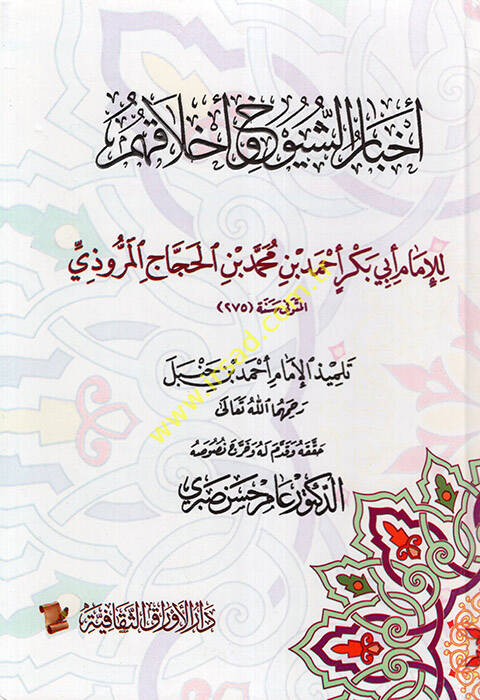 أخبار الشيوخ وأخلاقهم
للإمام أبي بكر أحمد بن محمد بن الحجاج المروذي
المتوفى سنة (٢٧٥)
تلميذ الإمام أحمد بن حنبل
رحمهما الله تعالى
حققه وقدم له وخرج نصوصه
الدكتور عامر حسن صبري
دار الأوراق الثقافية
www.irsad.com.tr